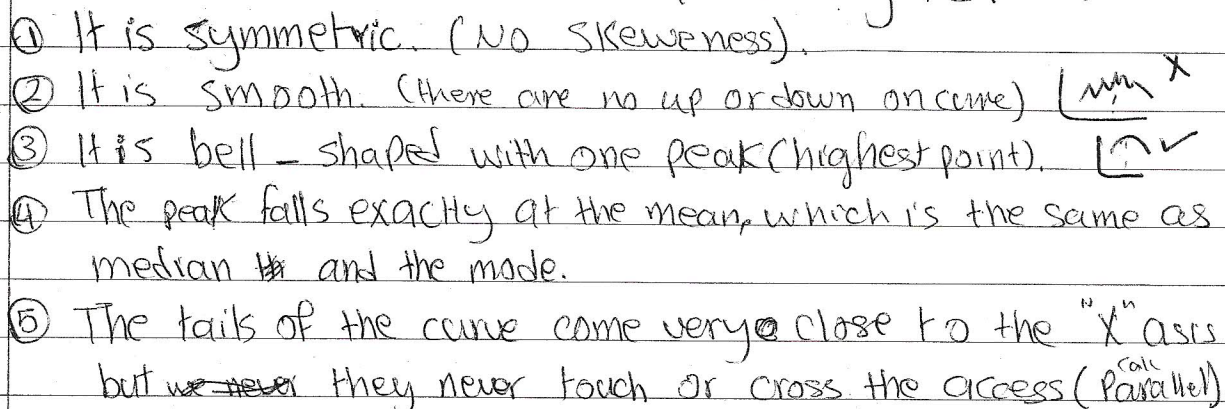 ① It is symmetric. (No Skeweness).
② It is smooth. (there are no up or down on curve) X
③ It is bell - shaped with one peak (highest point). ✓
④ The peak falls exactly at the mean, which is the same as
median and the mode.
⑤ The tails of the curve come very close to the "X" asis
but we never they never touch or cross the access (call Parallel)